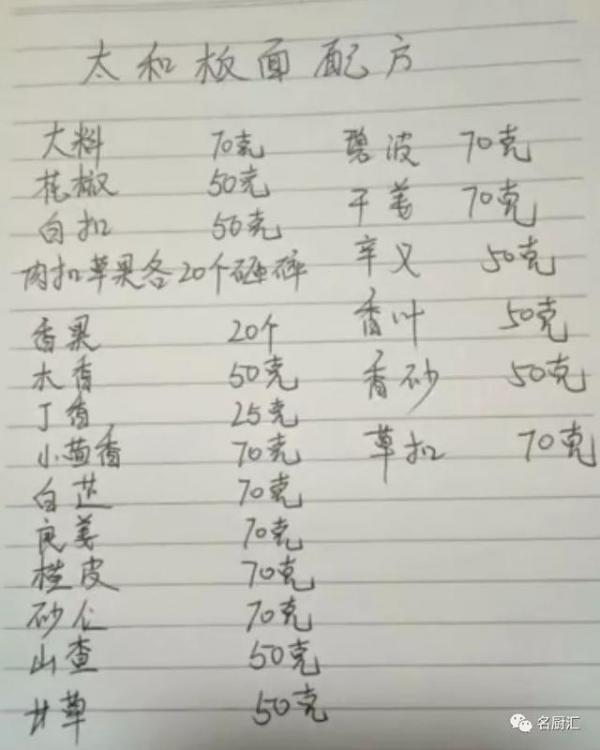 太和板面配方
大料 70克
花椒 50克
白扣 50克
肉扣草果各20个砸碎
香果 20个
木香 50克
丁香 25克
小茴香 70克
白芷 70克
良姜 70克
桂皮 70克
砂仁 70克
山查 50克
甘草 50克
碧波 70克
干姜 70克
辛义 50克
香叶 50克
香砂 50克
草扣 70克
名厨汇